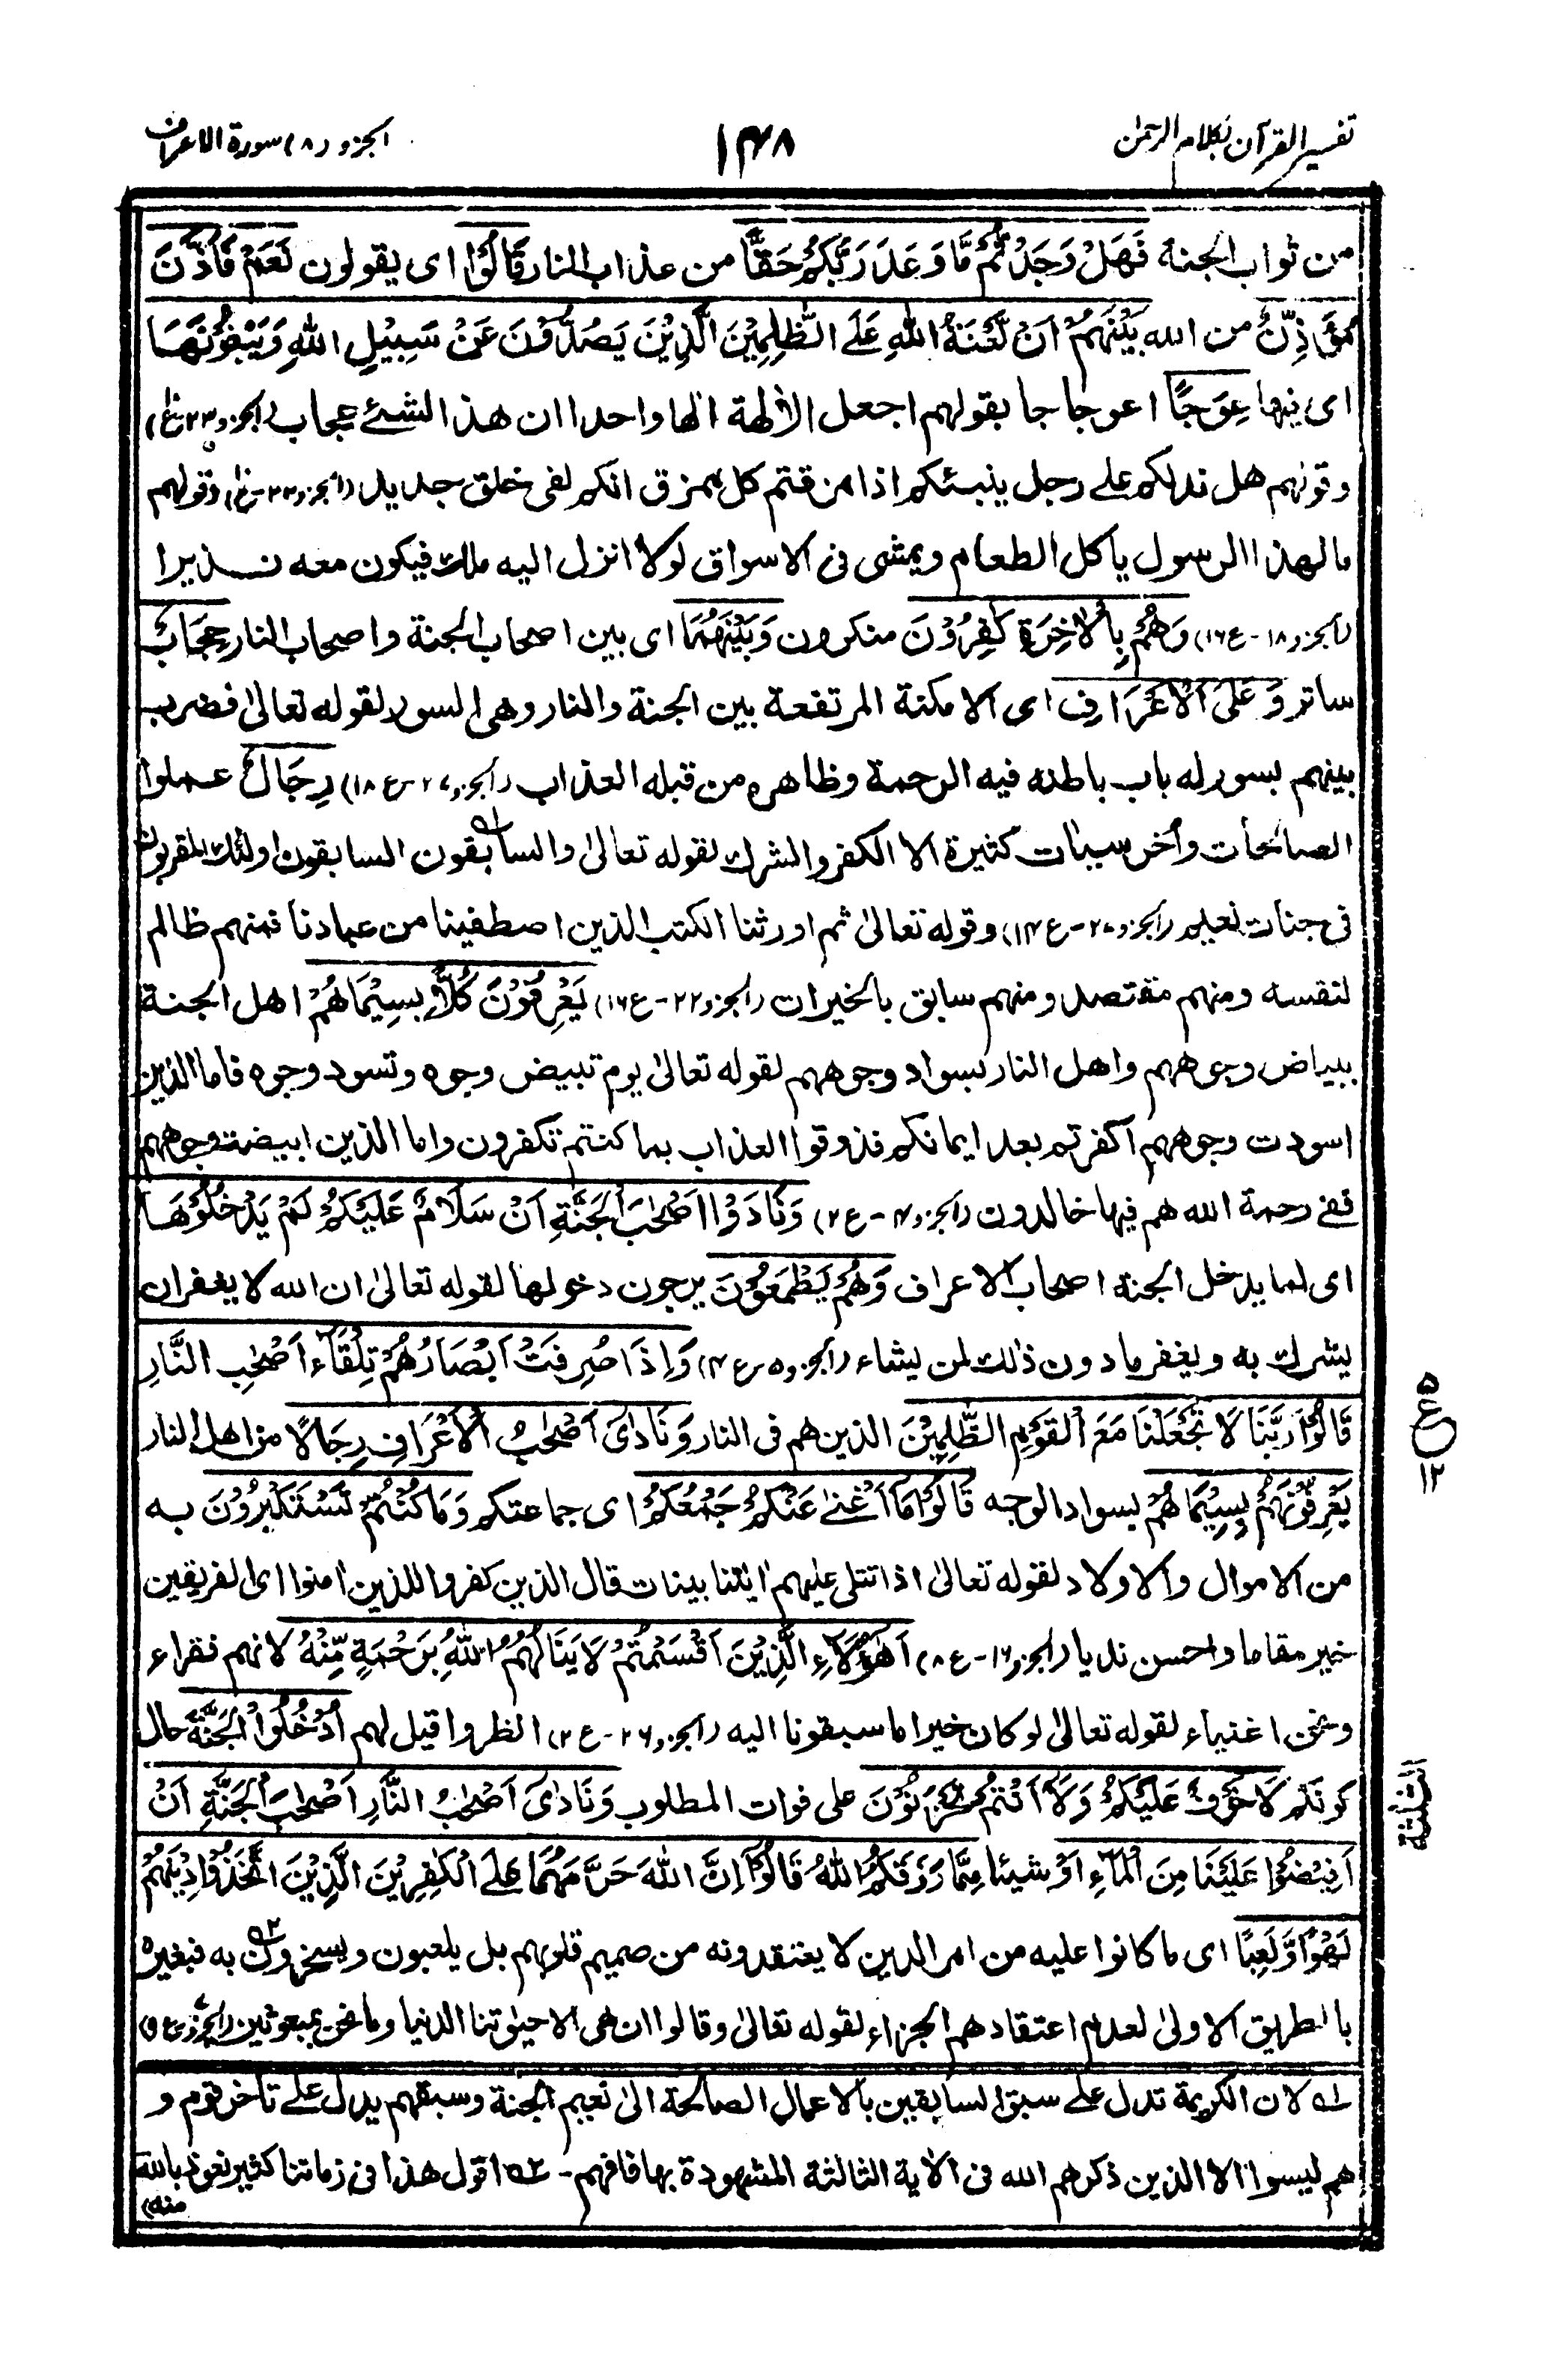 تفسير القرآن بكلام الرحمن
١٤٨
الجزو (٨) سورة الاعراف
من ثواب الجنة فَهَلْ وَجَدْتُّمْ مَّا وَعَدَ رَبُّكُمْ حَقًّا من عذاب النار قَالُوْا اى يقولون نَعَمْ فَاَذَّنَ
مُؤَذِّنٌ من الله بَيْنَهُمْ اَنْ لَّعْنَةُ اللّٰهِ عَلَى الظّٰلِمِيْنَ الَّذِيْنَ يَصُدُّوْنَ عَنْ سَبِيْلِ اللّٰهِ وَيَبْغُوْنَهَا
اى فيها عِوَجًا اعوجاجا بقولهم اجعل الاٰلهة الٰها واحدا ان هذا لشئ عجاب (الجزو ٢٣ ع)
وقولهم هل ندلكم على رجل ينبئكم اذا مزقتم كل ممزق انكم لفى خلق جديد (الجزو ٢٢ - ع) وقولهم
مالهذا الرسول ياكل الطعام ويمشى فى الاسواق لولا انزل اليه ملك فيكون معه نذيرا
(الجزو ١٨ - ع ١٦) وَهُمْ بِالْاٰخِرَةِ كٰفِرُوْنَ منكرون وَبَيْنَهُمَا اى بين اصحاب الجنة واصحاب النار حِجَابٌ
ساتر وَعَلَى الْاَعْرَافِ اى الامكنة المرتفعة بين الجنة والنار وهى السور لقوله تعالىٰ فضرب
بينهم بسور له باب باطنه فيه الرحمة وظاهره من قبله العذاب (الجزو ٢٧ - ع ١٨) رِجَالٌ عملوا
الصالحات وأخر سيئات كثيرة الا الكفر والشرك لقوله تعالىٰ والسابقون السابقون اولئك المقربون
فى جنات نعيم (الجزو ٢٧ - ع ١٤) وقوله تعالىٰ ثم اورثنا الكتب الذين اصطفينا من عبادنا فمنهم ظالم
لنفسه ومنهم مقتصد ومنهم سابق بالخيرات (الجزو ٢٢ - ع ١٦) يَعْرِفُوْنَ كُلًّا بِسِيْمَاهُمْ اهل الجنة
ببياض وجوههم واهل النار بسواد وجوههم لقوله تعالىٰ يوم تبيض وجوه وتسود وجوه فاما الذين
اسودت وجوههم اكفرتم بعد ايمانكم فذوقوا العذاب بما كنتم تكفرون واما الذين ابيضت وجوههم
ففى رحمة الله هم فيها خالدون (الجزو ٤ - ع ٢) وَنَادَوْا اَصْحٰبَ الْجَنَّةِ اَنْ سَلَامٌ عَلَيْكُمْ لَمْ يَدْخُلُوْهَا
اى لما يدخل الجنة اصحاب الاعراف وَهُمْ يَطْمَعُوْنَ يرجون دخولها لقوله تعالىٰ ان الله لا يغفر ان
يشرك به ويغفر ما دون ذلك لمن يشاء (الجزو ٥ - ع ٤) وَاِذَا صُرِفَتْ اَبْصَارُهُمْ تِلْقَآءَ اَصْحٰبِ النَّارِ
قَالُوْا رَبَّنَا لَا تَجْعَلْنَا مَعَ الْقَوْمِ الظّٰلِمِيْنَ الذين هم فى النار وَنَادٰىٓ اَصْحٰبُ الْاَعْرَافِ رِجَالًا من اهل النار
يَعْرِفُوْنَهُمْ بِسِيْمَاهُمْ بسواد الوجه قَالُوْا مَآ اَغْنٰى عَنْكُمْ جَمْعُكُمْ اى جماعتكم وَمَا كُنْتُمْ تَسْتَكْبِرُوْنَ به
من الاموال والاولاد لقوله تعالىٰ اذا تتلى عليهم اٰيتنا بينات قال الذين كفروا للذين اٰمنوا اى الفريقين
خير مقاما واحسن نديا (الجزو ١٦ - ع ٨) اَهٰٓؤُلَآءِ الَّذِيْنَ اَقْسَمْتُمْ لَا يَنَالُهُمُ اللّٰهُ بِرَحْمَةٍ مِّنْهُ لانهم فقراء
ونحن اغنياء لقوله تعالىٰ لو كان خيرا ما سبقونا اليه (الجزو ٢٦ - ع ٢) انظروا قيل لهم اُدْخُلُوا الْجَنَّةَ حال
كونكم لَا خَوْفٌ عَلَيْكُمْ وَلَآ اَنْتُمْ تَحْزَنُوْنَ على فوات المطلوب وَنَادٰىٓ اَصْحٰبُ النَّارِ اَصْحٰبَ الْجَنَّةِ اَنْ
اَفِيْضُوْا عَلَيْنَا مِنَ الْمَآءِ اَوْ شيئا مِمَّا رَزَقَكُمُ اللّٰهُ قَالُوْٓا اِنَّ اللّٰهَ حَرَّمَهُمَا عَلَى الْكٰفِرِيْنَ الَّذِيْنَ اتَّخَذُوْا دِيْنَهُمْ
لَهْوًا وَّلَعِبًا اى ما كانوا عليه من امر الدين لا يعتقدونه من صميم قلوبهم بل يلعبون ويسخرون ٥٢ به فبغيره
بالطريق الاولىٰ لعدم اعتقادهم الجزاء لقوله تعالىٰ وقالوا ان هى الا حيٰوتنا الدنيا وما نحن بمبعوثين (الجزو ٧ ع ٩)
٥١ لان الكريمة تدل على سبق السابقين بالاعمال الصالحة الىٰ نعيم الجنة وسبقهم يدل على تأخر قوم و
هم ليسوا الا الذين ذكرهم الله فى الاٰية الثالثة المشهودة بها فافهم - ٥٢ اقول هذا فى زماننا كثير نعوذ بالله
منه)
٥
ع
١٢
الثلثة